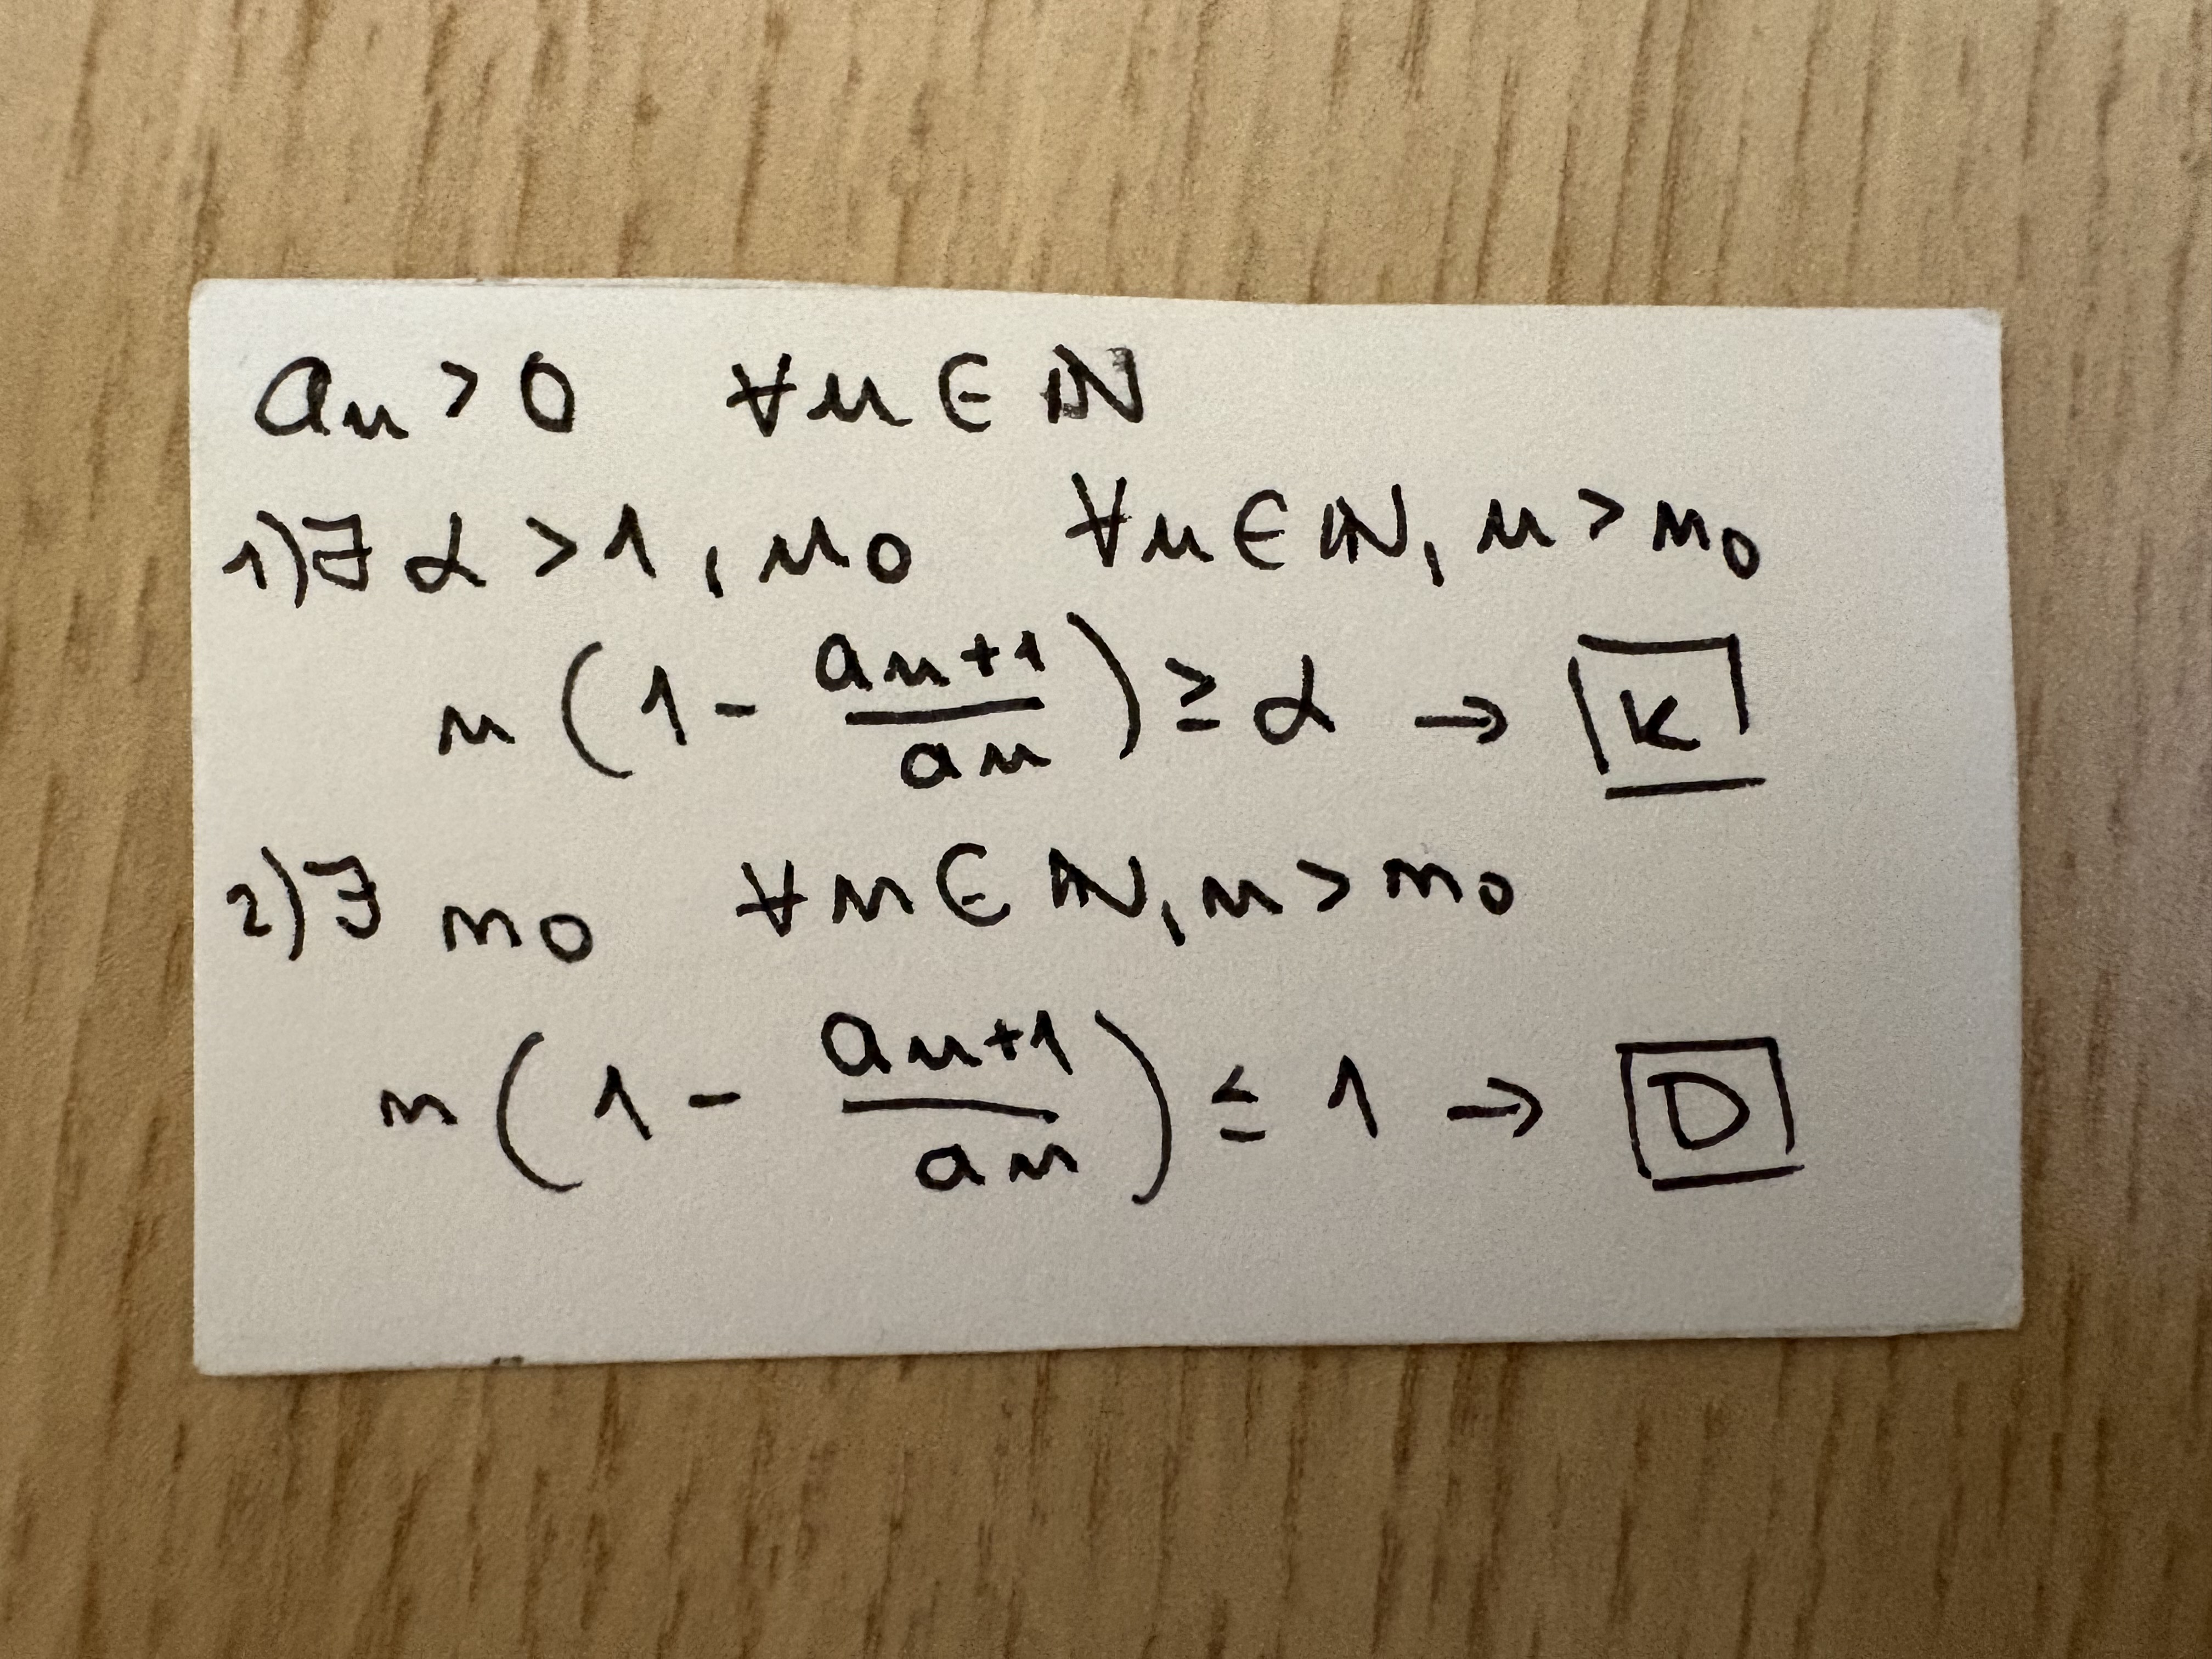 aₙ > 0 ∀n ∈ ℕ
1) ∃ α > 1, n₀ ∀n ∈ ℕ, n > n₀
n(1 - aₙ₊₁/aₙ) ≥ α → K
2) ∃ n₀ ∀n ∈ ℕ, n > n₀
n(1 - aₙ₊₁/aₙ) ≤ 1 → D